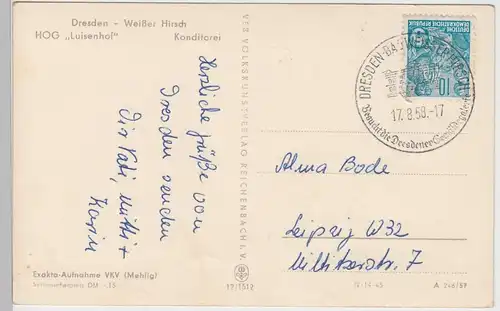 Dresden - Weißer Hirsch
HOG „Luisenhof" Konditorei
Herzliche Grüße von
Dresden senden
Dir Vati, Mutti +
Karin
VEB VOLKSKUNSTVERLAG REICHENBACH i. V.
Exakta-Aufnahme VKV (Mehlig)
Verbraucherpreis DM -.15
17/1512
IV-14-45
A 246/57
DEUTSCHE
DEMOKRATISCHE
REPUBLIK
10
DRESDEN-BAD WEISSER HIRSCH
17.8.58.-17
Besucht die Dresdener
Alma Bode
Leipzig W32